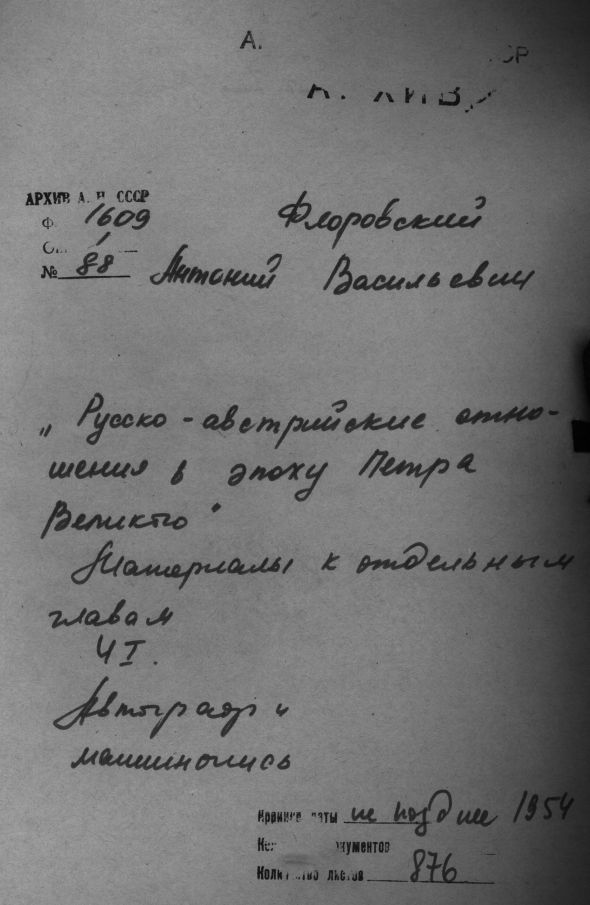 А.
АРХИВ А. Н. СССР
Ф. 1609
Оп. 1
№ 88
Флоровский
Антоний Васильевич
„Русско-австрийские отно-
шения в эпоху Петра
Великого"
Материалы к отдельным
главам
Ч I.
Автограф и
машинопись
даты не позднее 1954
листов 876